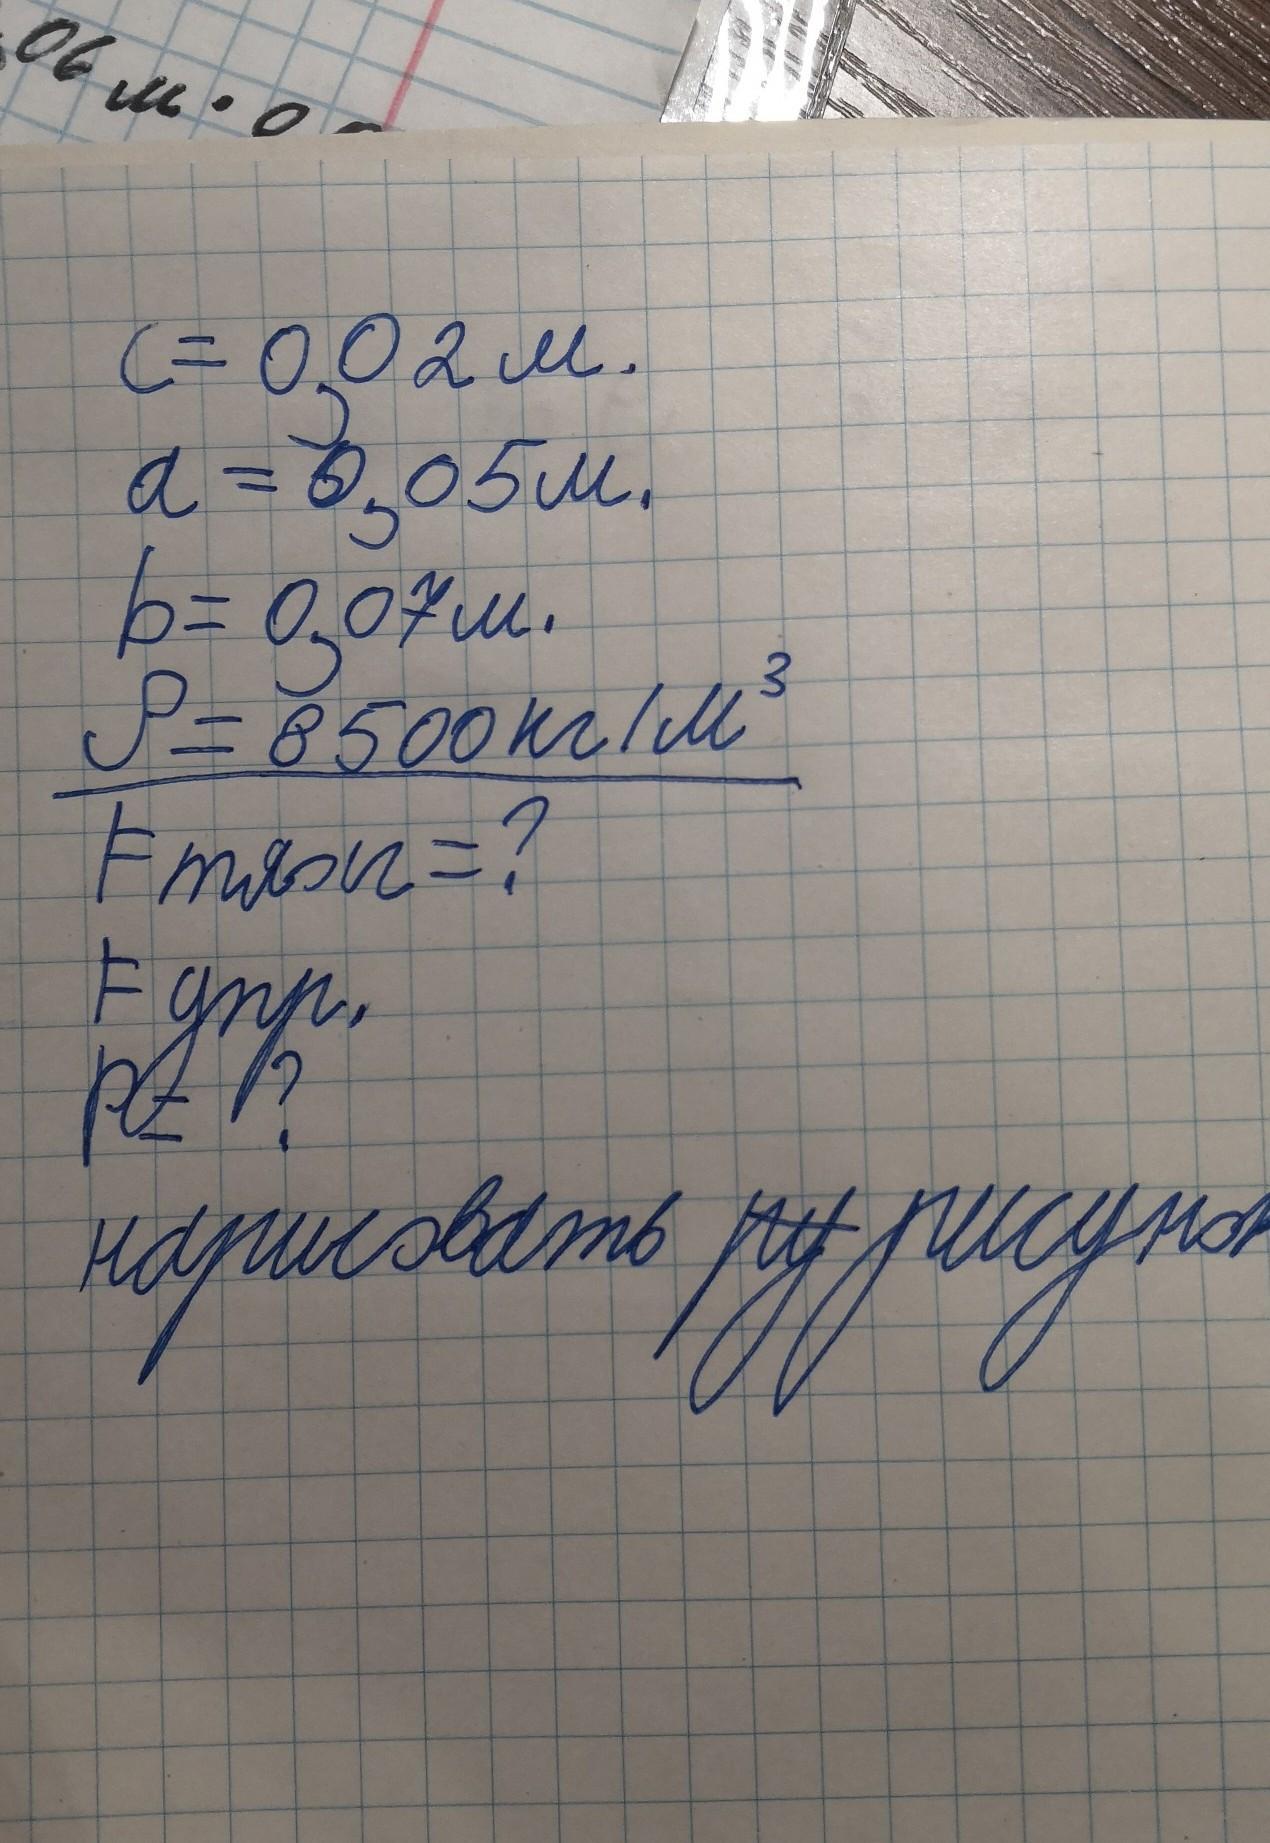 06 м · 0,0
c = 0,02 м.
a = 0,05 м.
b = 0,07 м.
ρ = 8500 кг/м³
Fтяж = ?
Fупр.
P = ?
нарисовать рисунок